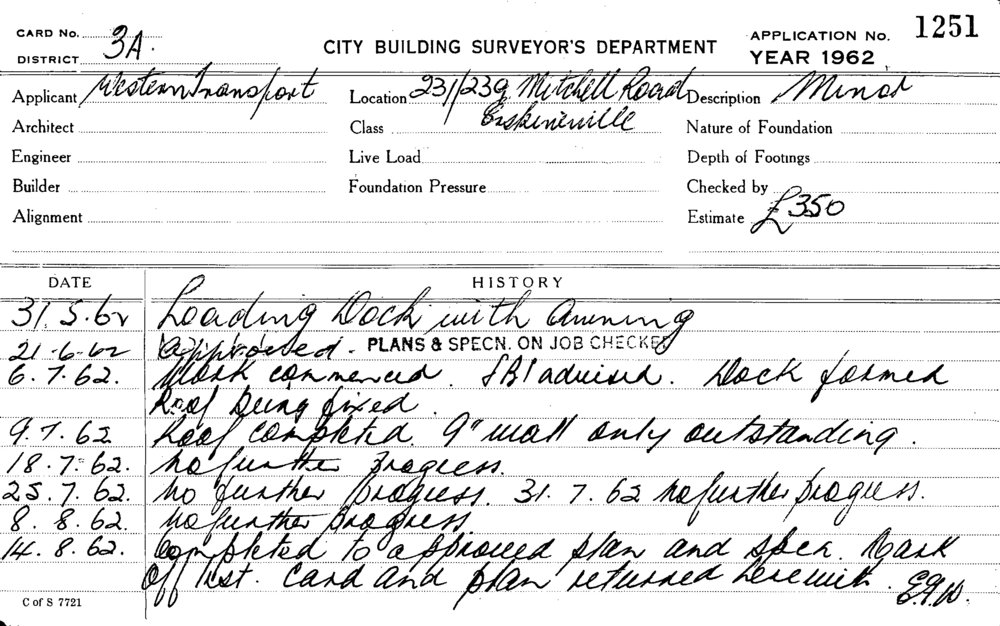 CARD No. 3A. CITY BUILDING SURVEYOR'S DEPARTMENT APPLICATION No. 1251
DISTRICT YEAR 1962
Applicant Western Transport Location 231/239 Mitchell Road Description Minor
Architect Class Erskineville Nature of Foundation
Engineer Live Load Depth of Footings
Builder Foundation Pressure Checked by
Alignment Estimate £350
DATE HISTORY
31.5.62 Loading Dock with Awning
21-6-62 Approved. PLANS & SPECN. ON JOB CHECKED
6.7.62. Work commenced. advised. Dock formed
Roof being fixed.
9.7.62 Roof completed. 9" wall only outstanding.
18.7.62. No further progress.
25.7.62. No further progress. 31.7.62 No further progress.
8.8.62. No further progress
14.8.62. Completed to approved plan and specn. Mark
off list. Card and plan returned herewith. E.G.W.
C of S 7721